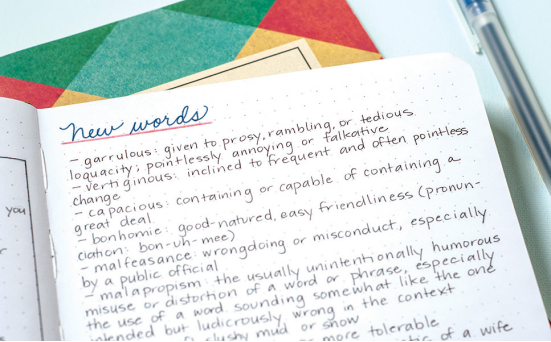 new words
- garrulous: given to prosy, rambling, or tedious
loquacity; pointlessly annoying or talkative
- vertiginous: inclined to frequent and often pointless
change
- capacious: containing or capable of containing a
great deal
- bonhomie: good-natured, easy friendliness (pronun-
ciation: bon-uh-mee)
- malfeasance: wrongdoing or misconduct, especially
by a public official
- malapropism: the usually unintentionally humorous
misuse or distortion of a word or phrase, especially
the use of a word sounding somewhat like the one
intended but ludicrously wrong in the context
slushy mud or snow
more tolerable
of a wife
you